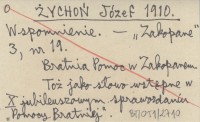 O
ŻYCHOŃ Józef 1910.
Wspomnienie. — „Zakopane"
3, nr 19.
Bratnia Pomoc w Zakopanem.
Toż jako słowo wstępne w
X jubileuszowym sprawozdaniu
„Pomocy Bratniej".